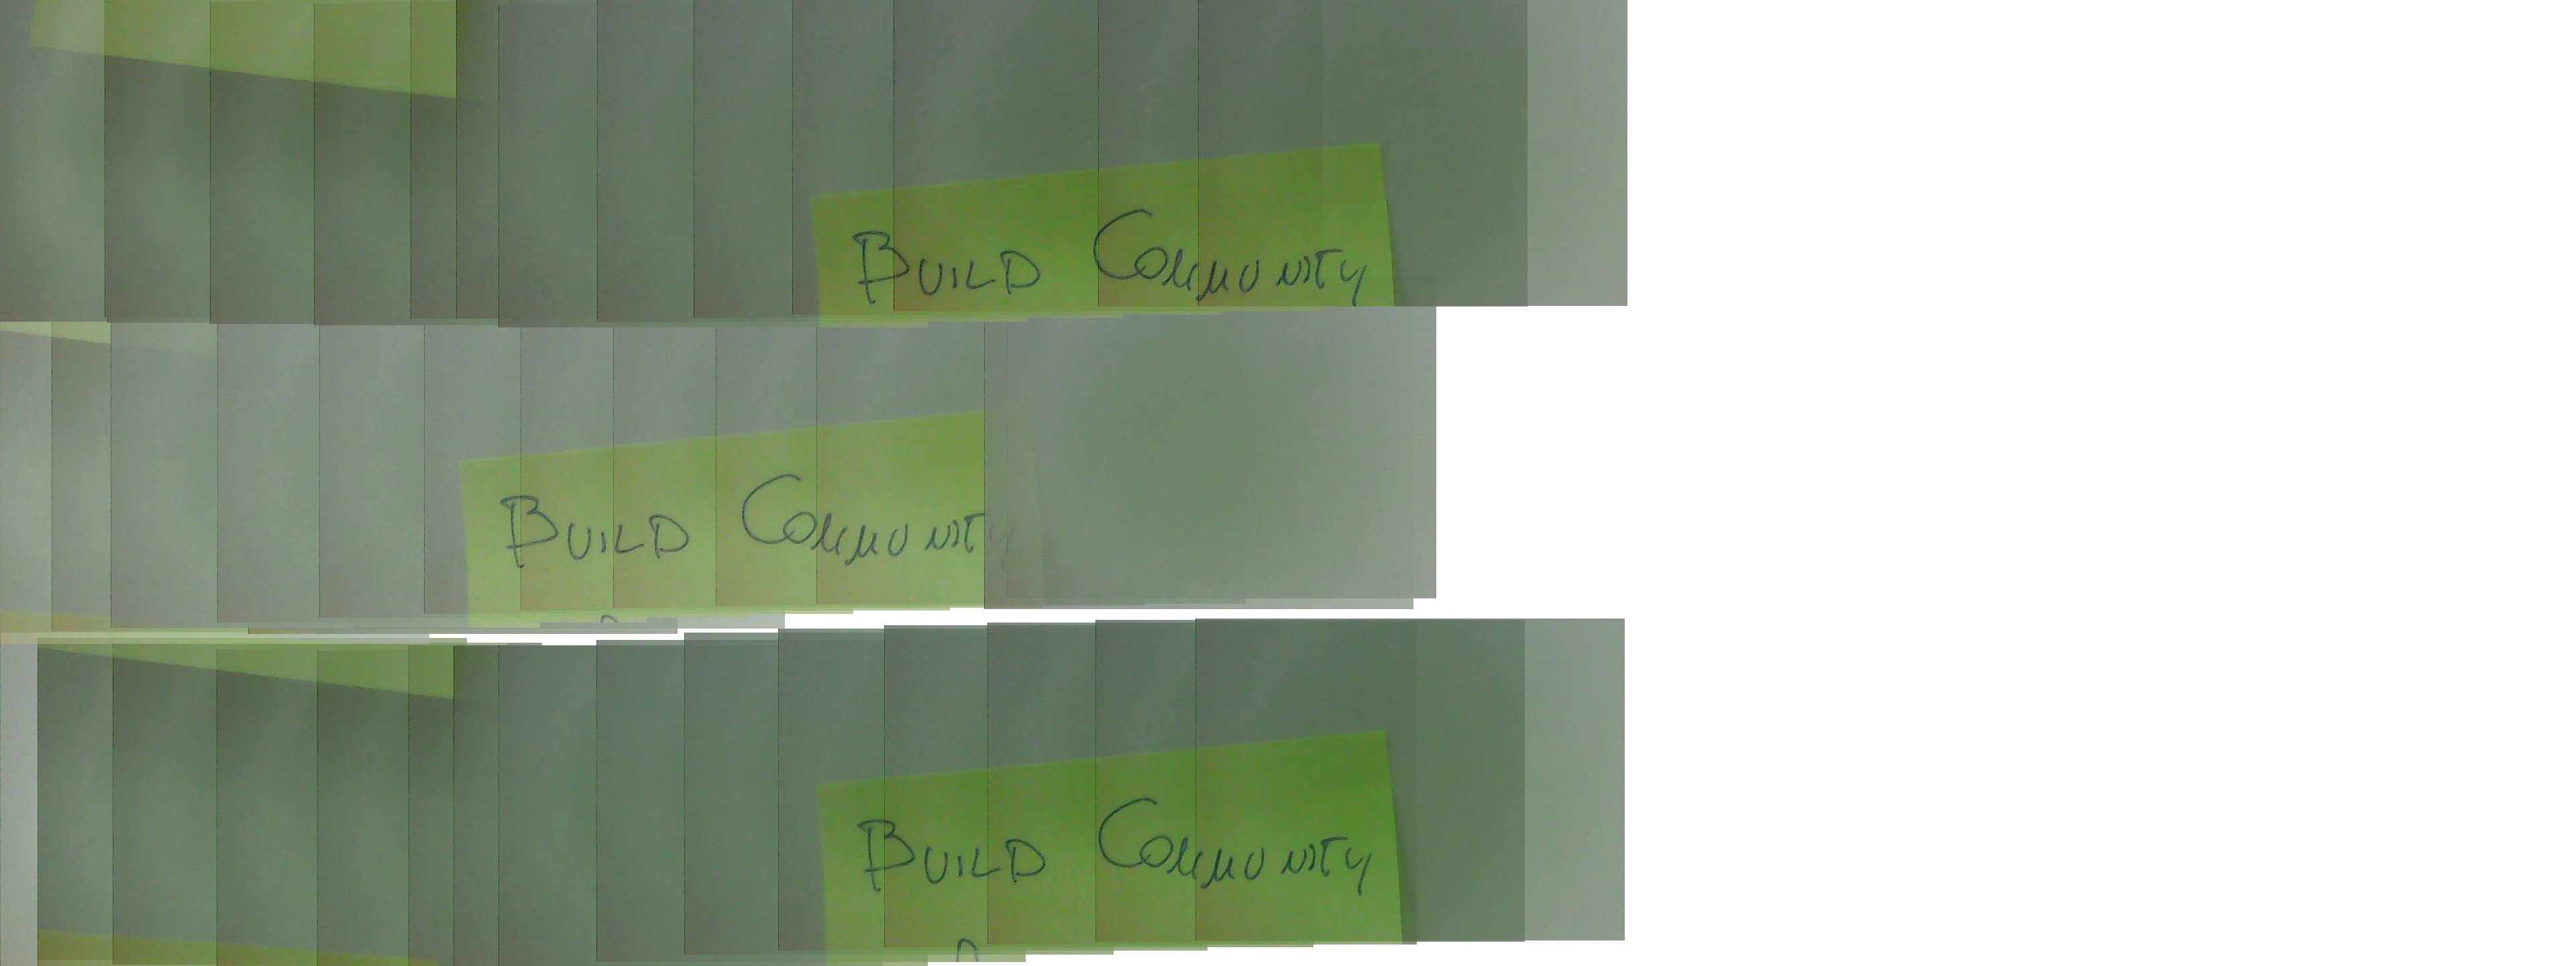 Build Community
Build Community
Build Community